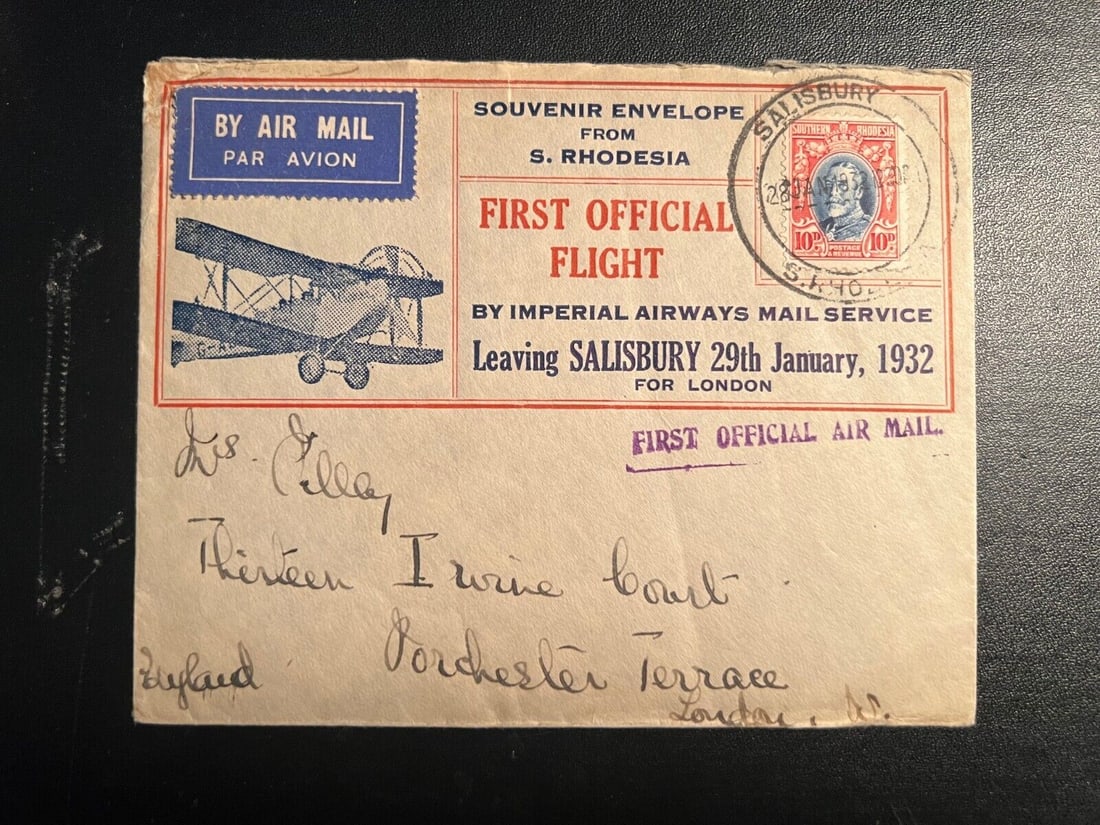 BY AIR MAIL
PAR AVION
SOUVENIR ENVELOPE
FROM
S. RHODESIA
FIRST OFFICIAL
FLIGHT
BY IMPERIAL AIRWAYS MAIL SERVICE
Leaving SALISBURY 29th January, 1932
FOR LONDON
SALISBURY
SOUTHERN RHODESIA
28 JAN
10D. 10D.
POSTAGE
& REVENUE
FIRST OFFICIAL AIR MAIL.
Thirteen Irvine Court
Porchester Terrace
London. W.
England